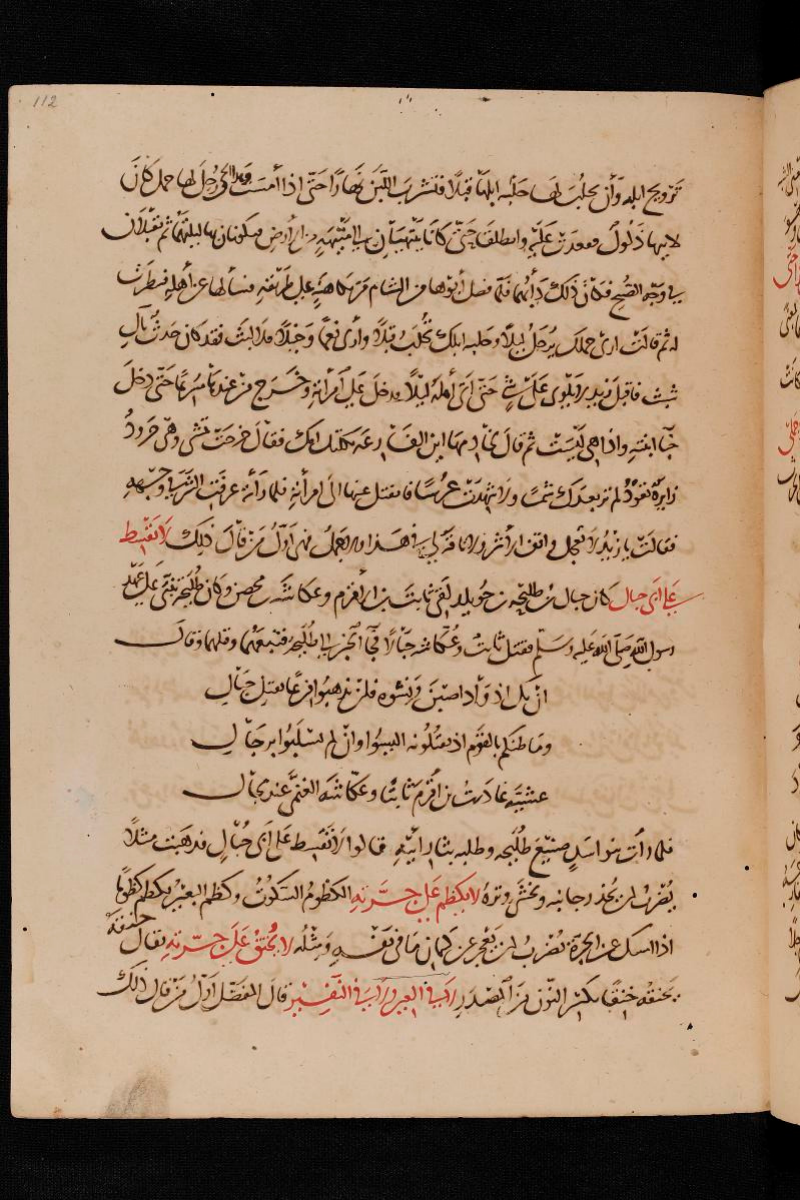 112
تزويج ابله وأن يحلب لها حلبه ابلها قبلا فتشرب اللبن نهارا حتى اذا أمست وهدا الحى رحل لها جمل كان
لابيها ذلول فقعدت عليه وانطلقا حتى كانا ينتهيان الى متيهة من الأرض فيكونان بها ليلتهما ثم يقبلان
فى وجه الصبح فكان ذلك دأبهما فلما فصل أبوها من الشام مر بكاهنة على طريقه فسألها عن أهله فنظرت
له ثم قالت أرى جملك يرحل ليلا وحلبة ابلك تحلب قبلا وأرى نعما وجبلا فلا لبث فقد كان حدث بآل
شبث فاقبل زيد لا يلوى على شئ حتى أتى أهله ليلا فدخل على امرأته وخرج من عندها مسرعا حتى دخل
خبا ابنته واذا هى ليست ثم قال لخادمها اين الفاجرة ثكلتك امك فقال خرجت تمشى وهى حرود
زايرة تعود لم تر بعدك شمسا ولا شهدت عرسا فانفتل عنها الى امرأته فلما رأته عرفت الشر فى وجهه
فقالت يا زيد لا تعجل واقف الأثر ولا ناقة لى فى هذا ولا جمل فهى أول من قال ذلك لا تقسط
على أبى حبال كان حبال بن طليحة بن خويلد لقى ثابت بن الأقرم وعكاشة بن محصن وكان طليحة تنبى على عهد
رسول الله صلى الله عليه وسلم فقتل ثابت وعكاشة حبالا فجا الخبر الى طليحة فتبعهما وقتلهما وقال
ان يك اذواد اصبن ونسوة فلن تذهبوا فرغا بقتل حبال
وما ظنكم بالقوم اذ تقتلونه اليسوا وان لم يسلموا برجال
عشية غادرت بن اقرم ثابتا وعكاشة الغنمى عند مجال
فلما رأت بنو اسد صنيع طليحة وطلبه بثار ابنه قالوا لا تقسط على أبى حبال فذهبت مثلا
يضرب لمن يحذر جانبه ويخشى وتره لا يكظم على جرته الكظوم السكوت وكظم البعير يكظم كظوما
اذا امسك عن الجرة يضرب لمن يعجز عن كتمان ما فى نفسه ومثله لا يخنق على جرته يقال خنقه
يخنقه خنقا بكسر النون من المصدر لا فى العير ولا فى النفير قال المفضل أول من قال ذلك